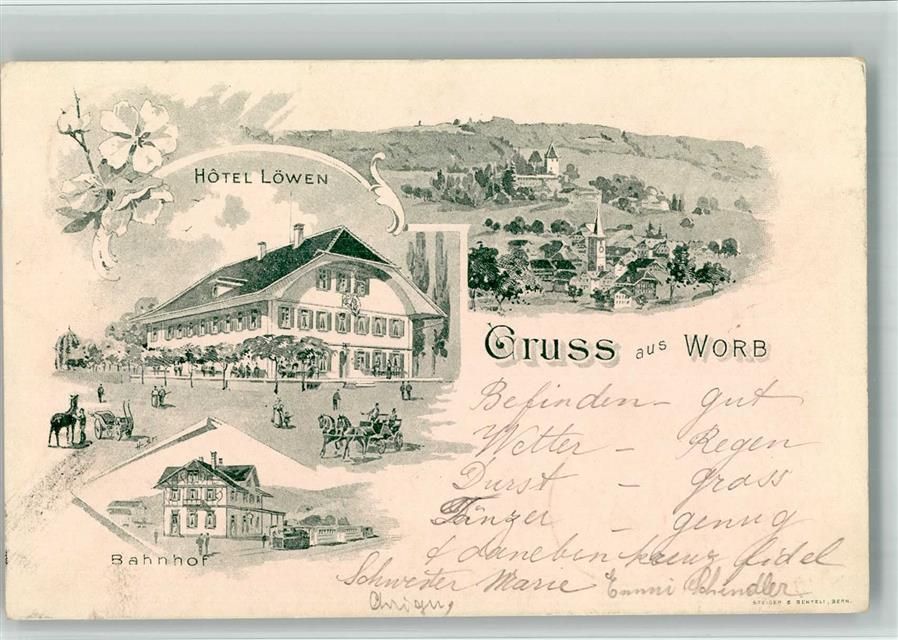 HÔTEL LÖWEN
GRUSS aus WORB
Befinden – gut
Wetter – Regen
Durst – gross
Tänzer – genug
& daneben kreuz fidel
Schwester Marie Emmi Schindler
Bahnhof
STEIGER & BENTELI, BERN.